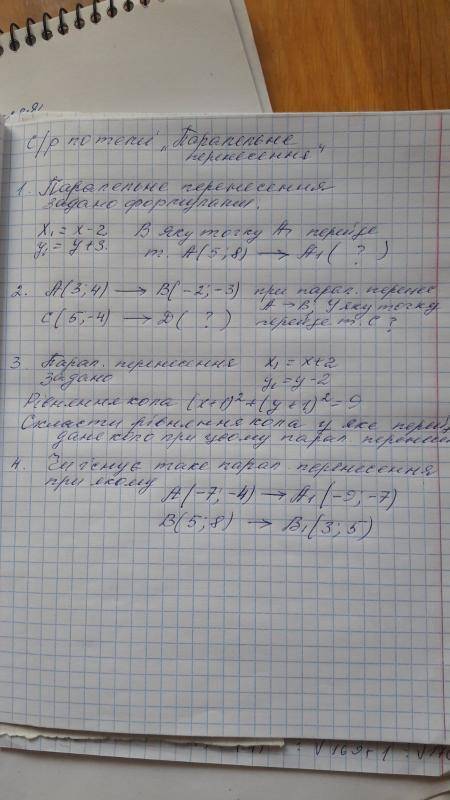 С/р по темі „Паралельне
перенесення"
1. Паралельне перенесення
задано формулами.
x₁ = x-2 В яку точку A₁ перейде
y₁ = y+3. т. A(5; 8) → A₁ ( ? )
2. A(3; 4) → B(-2; -3) при парал. перене
A → B, У яку точку
C(5; -4) → D ( ? ) перейде т. C ?
3 Парал. перенесення x₁ = x+2
задано y₁ = y-2
Рівняння кола (x+1)²+(y+1)²=9
Скласти рівняння кола у яке перей
дане коло при цьому парал. перенесен
4. Чи існує таке парал перенесення
при якому A(-7; -4) → A₁ (-9; -7)
B(5; 8) → B₁ (3; 5)